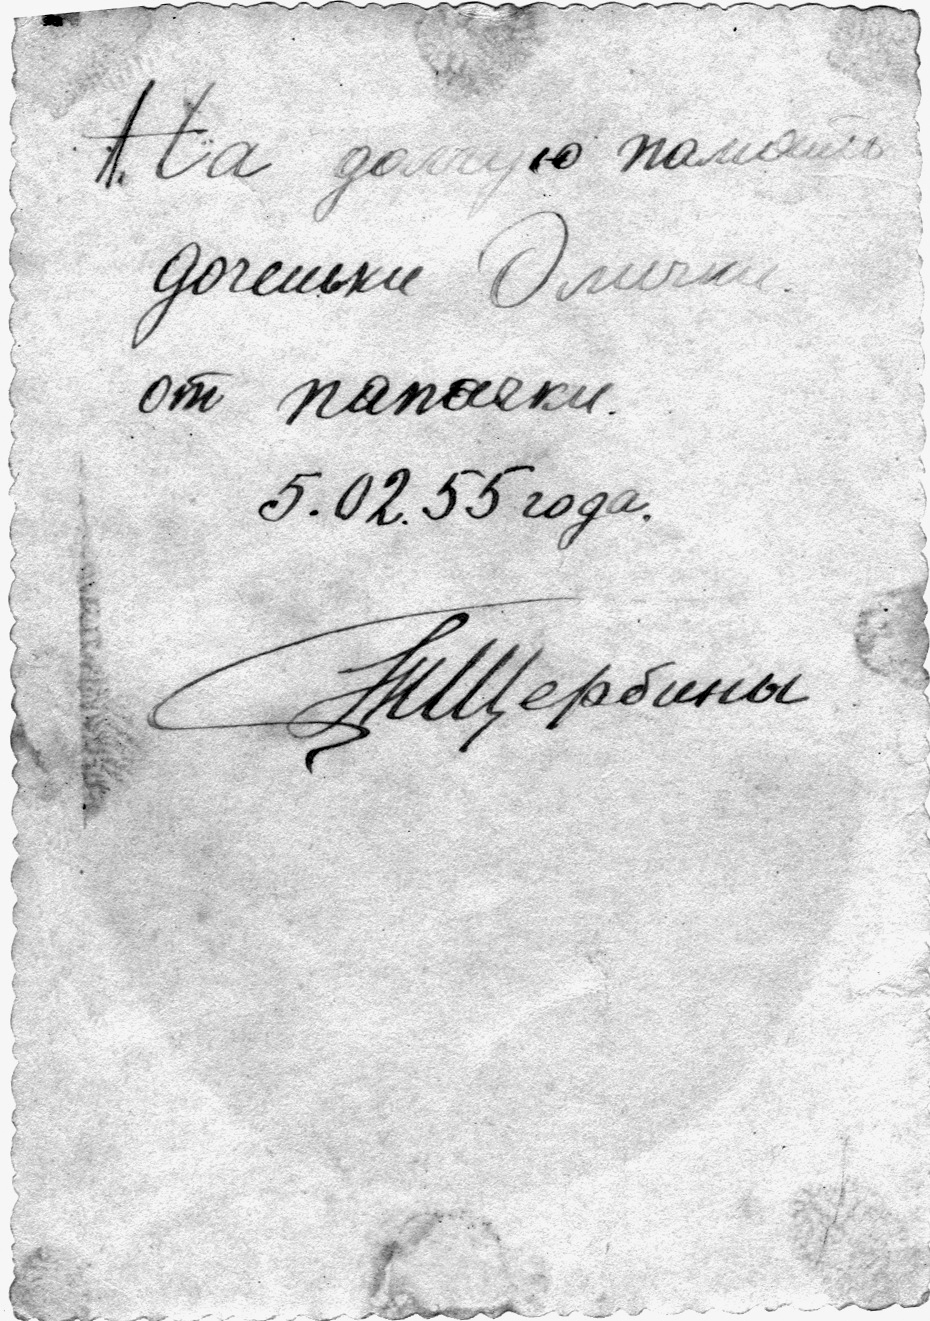 На долгую помать
доченьки Олички.
от папочки.
5.02.55 года.
Щербины